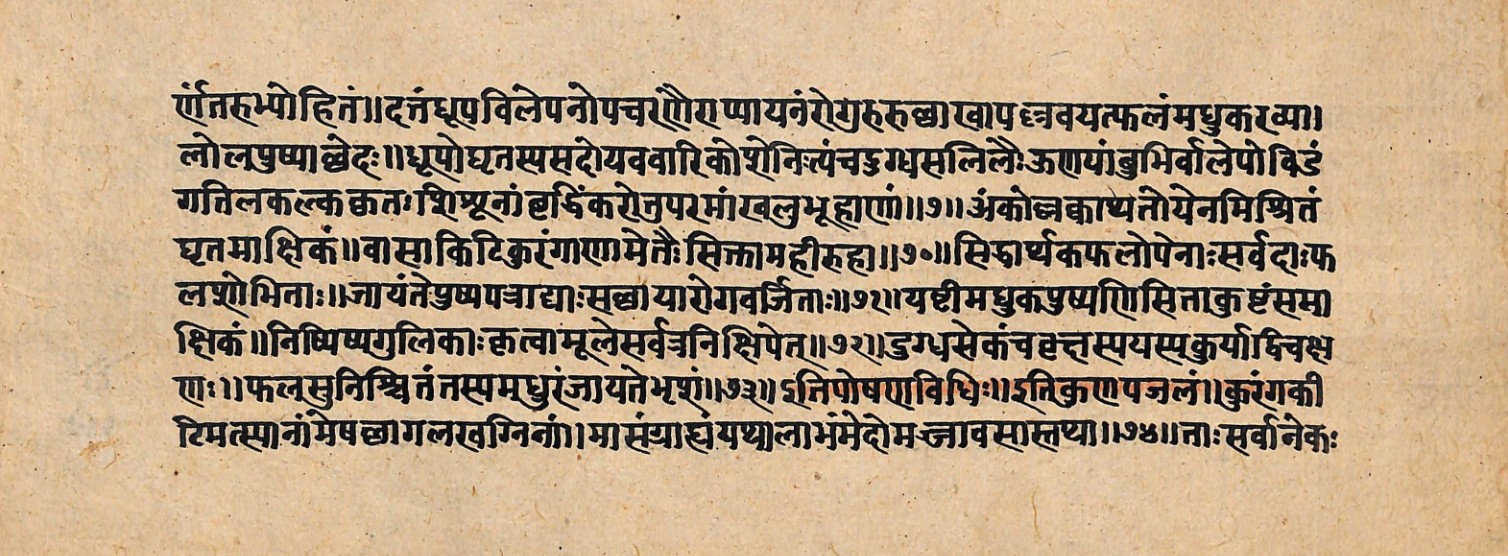 र्णंतरुभ्योहितं॥दत्तंधूपविलेपनोपचरणैराप्यायनंरोगुरुरुछाखापत्रवयत्फलंमधुकरव्या।
लोलपुष्पाछेदः॥धूपोघृतस्यसदोयववारिकोशेनित्यंचडुग्धसलिलैःऊणपांबुभिर्वालेपोविडं
गतिलकल्ककृतःशिशूनांवृद्धिंकरोतुपरमांखलुभूह्राणां॥७॥अंकोल्लक्वाथतोयेनमिश्रितं
घृतमाक्षिकं॥वासाकिटिकुरंगाणामेतैःसिक्तामहीरुहा॥७०॥सिद्धार्थकफलोपेनाःसर्वदाःफ
लशोभिताः॥जायंतेपुष्पपत्राद्याःसछायारोगवर्जिताः॥७१॥यष्टीमधुकपुष्पाणिसिताकुष्टंसमा
क्षिकं॥निष्पिष्यगुलिकाःकृत्वामूलेसर्वत्रनिक्षिपेत्॥७२॥डुग्धसेकंचवृक्षस्ययस्कुर्याद्विचक्ष
णः॥फलसुनिश्चितंतस्यमधुरंजायतेभृशं॥७३॥इतिपोषणविधिः॥इतिकुणपजलं॥कुरंगकी
टिमत्स्यानांमेषछागलखग्निनां॥मासंग्राह्यंयथालाभंमेदोमज्जावसास्तथा॥७४॥ताःसर्वानेकः